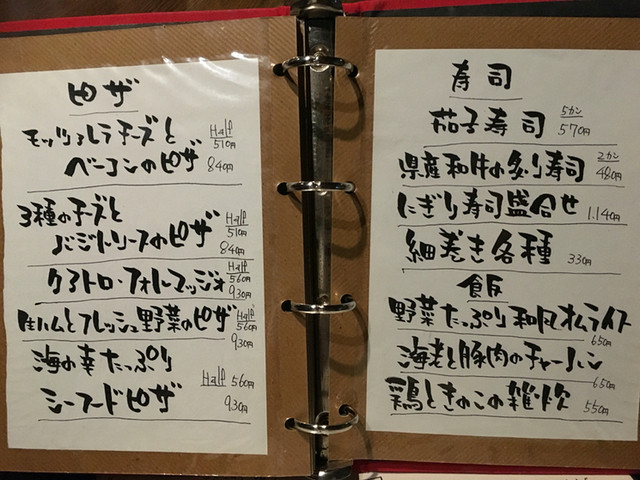 ピザ
モッツァレラチーズと
Half
510円
ベーコンのピザ 840円
3種のチーズと
バジトリソースのピザ
Half
510円
840円
クアトロ・フォルマッジオ
Half
560円
930円
生ハムとフレッシュ野菜のピザ
Half
560円
930円
海の幸たっぷり
シーフードピザ
Half 560円
930円
寿司
茄子寿司
5カン
570円
県産和牛の炙り寿司
2カン
480円
にぎり寿司盛合せ 1.140円
細巻き各種 330円
飯
野菜たっぷり和風オムライス
650円
海老と豚肉のチャーハン
650円
鶏ときのこの雑炊 550円